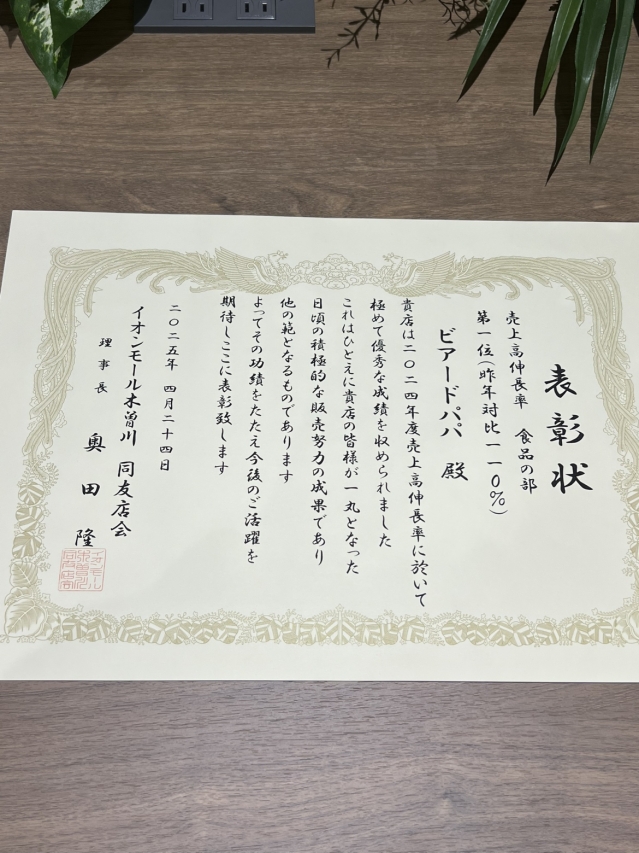 表彰状
売上高伸長率　食品の部
第一位（昨年対比一一０％）
ビアードパパ　殿
貴店は二０二四年度売上高伸長率に於いて
極めて優秀な成績を収められました
これはひとえに貴店の皆様が一丸となった
日頃の積極的な販売努力の成果であり
他の範となるものであります
よってその功績をたたえ今後のご活躍を
期待しここに表彰致します
二０二五年　四月二十四日
イオンモール木曽川　同友店会
理事長　奥田　隆